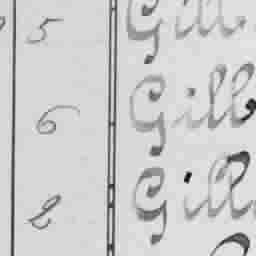 5 Gill
6 Gill
2 Gill